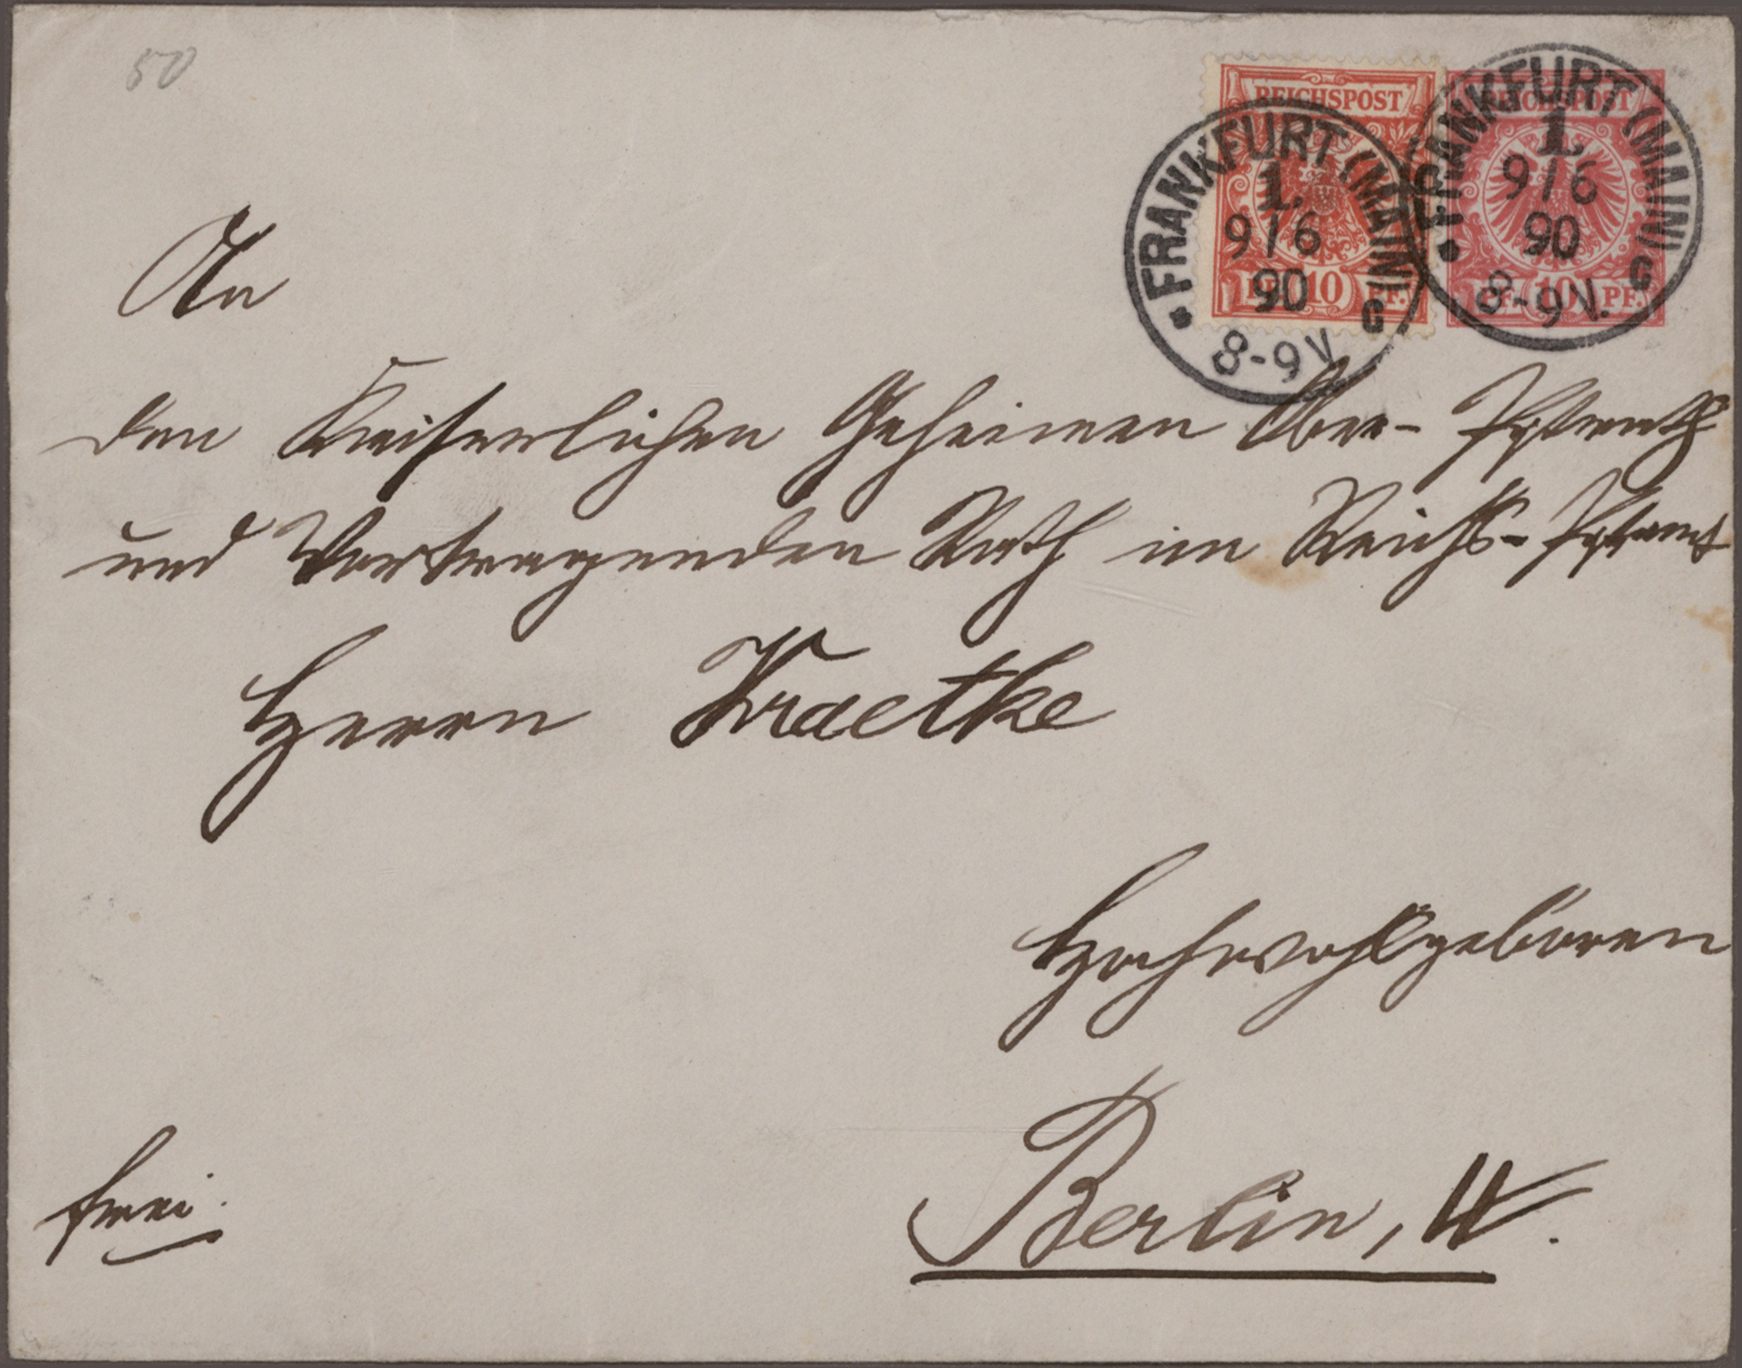 50
REICHSPOST
PF. 10 PF.
FRANKFURT (MAIN)
1.
9/6
90
8-9V.
G
REICHSPOST
PF. 10 PF.
FRANKFURT (MAIN)
1.
9/6
90
8-9V.
G
An
den Kaiserlichen Geheimen Ober-Postrath
und Vortragenden Rath im Reichs-Postamt
Herrn Kraetke
Hochwohlgeboren
frei.
Berlin, W.